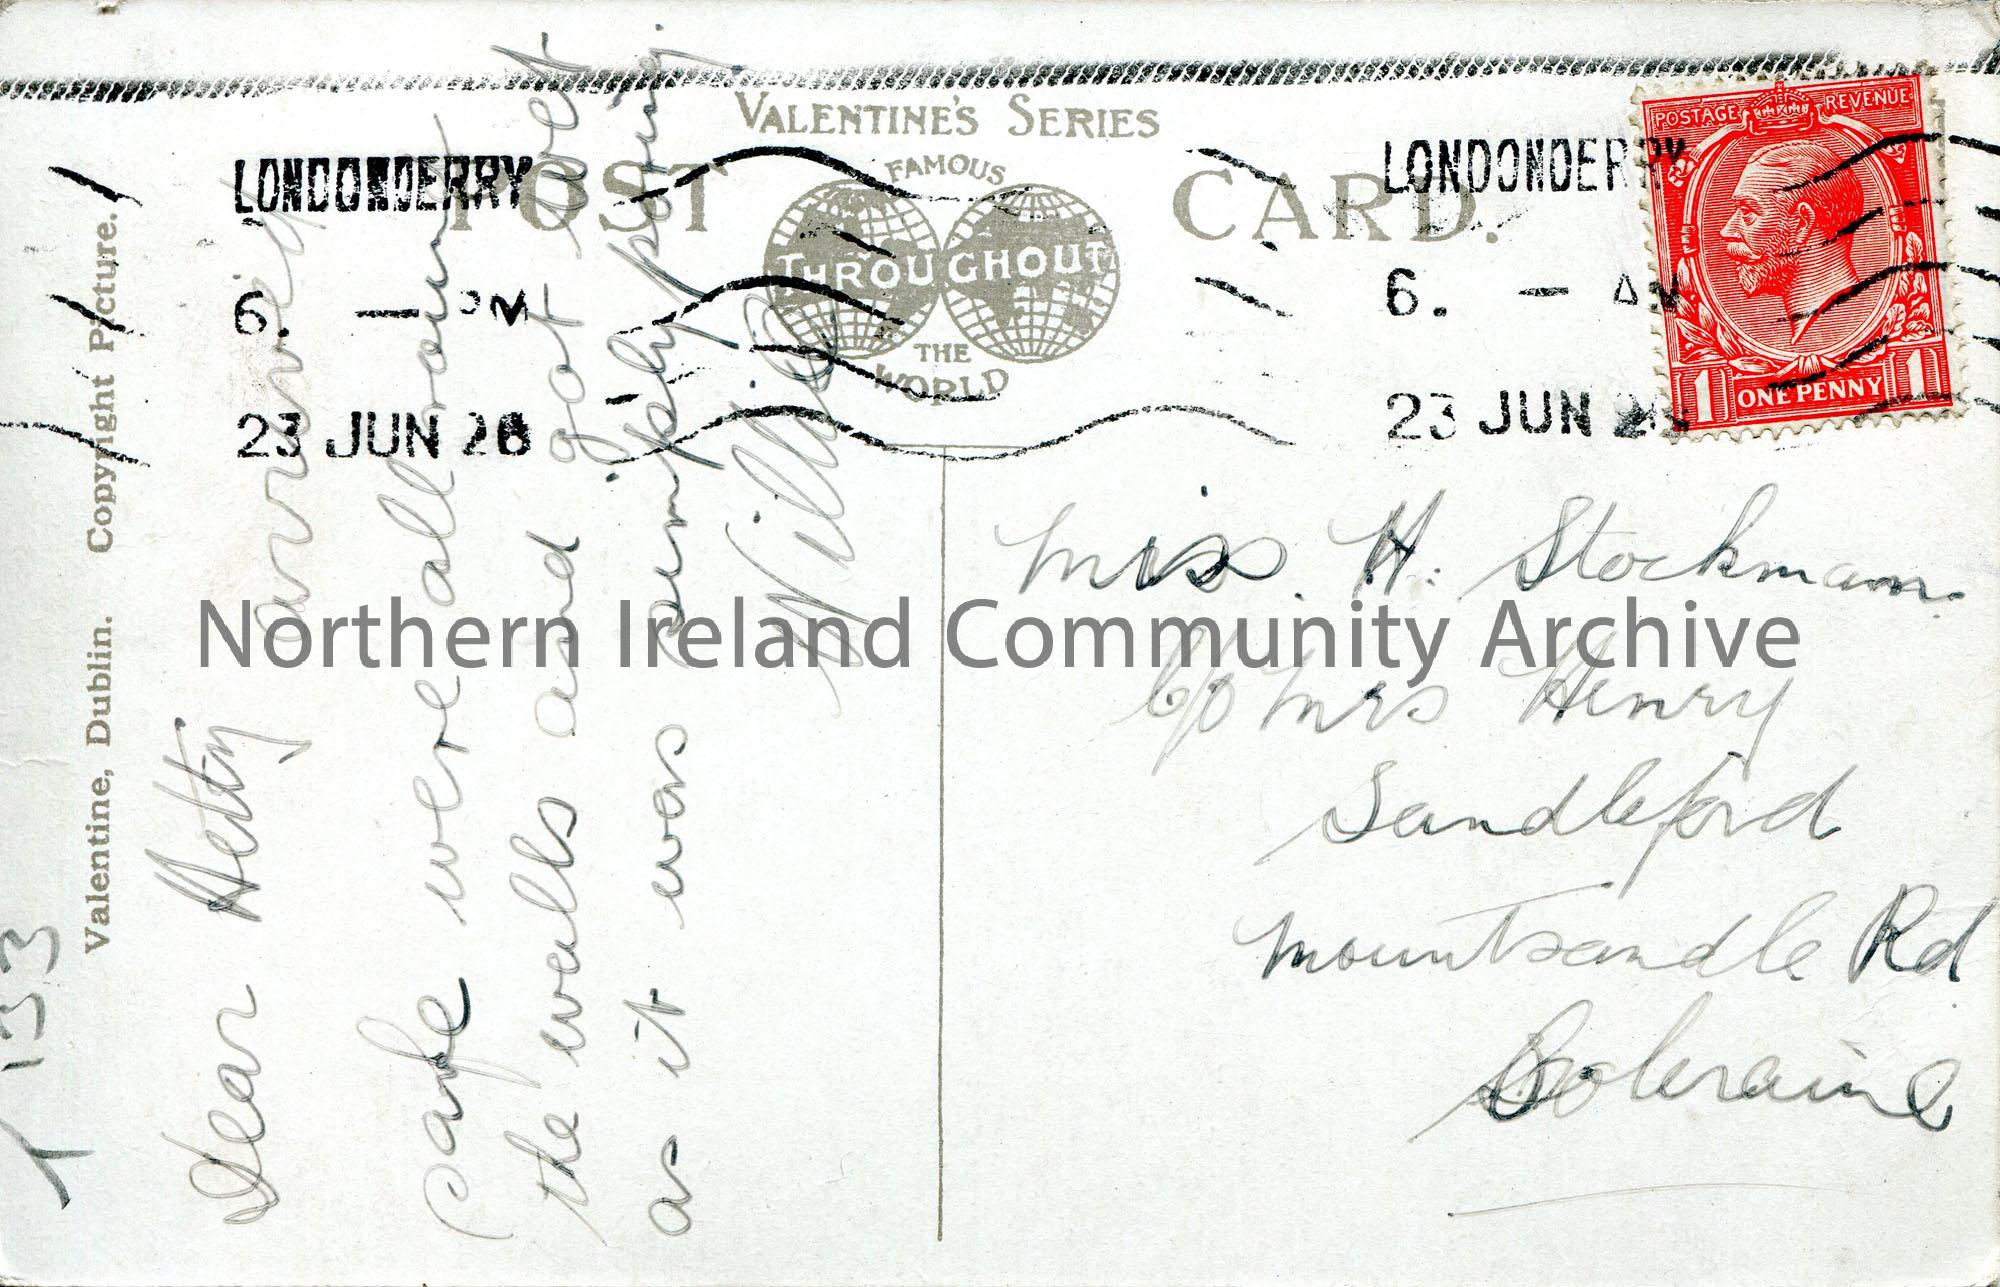 VALENTINE'S SERIES
POST CARD.
FAMOUS
THROUGHOUT
THE
WORLD
LONDONDERRY
6. — PM
23 JUN 26
LONDONDERRY
6. — PM
23 JUN
POSTAGE REVENUE
1 ONE PENNY 1
Valentine, Dublin. Copyright Picture.
133
Dear Hetty arrived
safe were all round
the walls and got wet
as it was simply pouring.
Willie
Miss. H. Stockman.
C/o Mrs Henry
Sandleford
Mountsandle Rd
Coleraine
Northern Ireland Community Archive